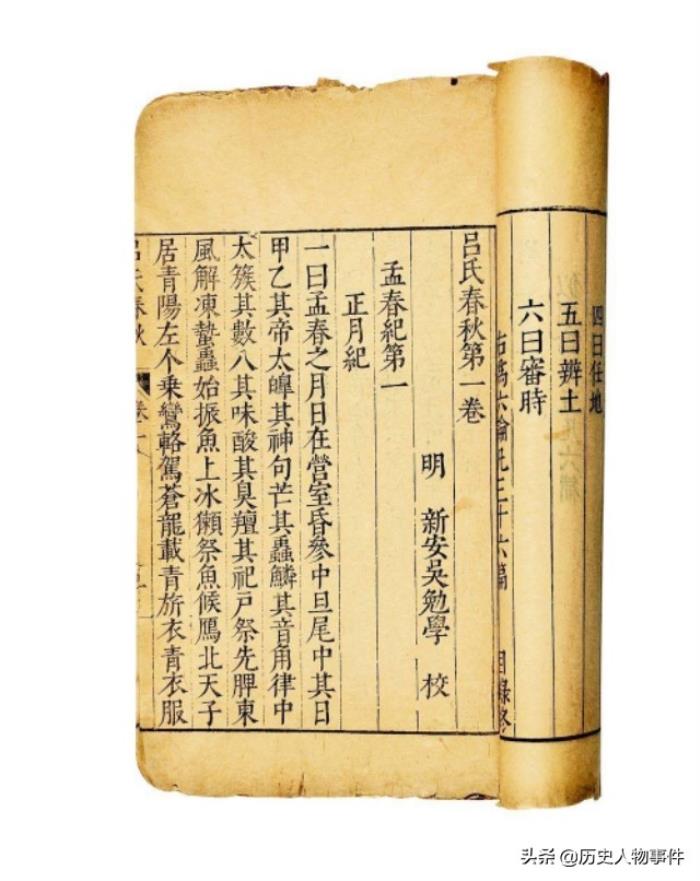 四曰任地
五曰辨土
六曰審時
右為六論凡三十六篇 目錄終
呂氏春秋第一卷
明 新安吳勉學 校
孟春紀第一
正月紀
一曰孟春之月日在營室昏參中旦尾中其日
甲乙其帝太皥其神句芒其蟲鱗其音角律中
太簇其數八其味酸其臭羶其祀戶祭先脾東
風解凍蟄蟲始振魚上冰獺祭魚候鴈北天子
居青陽左个乘鸞輅駕蒼龍載青旂衣青衣服
呂氏春秋
头条 @历史人物事件